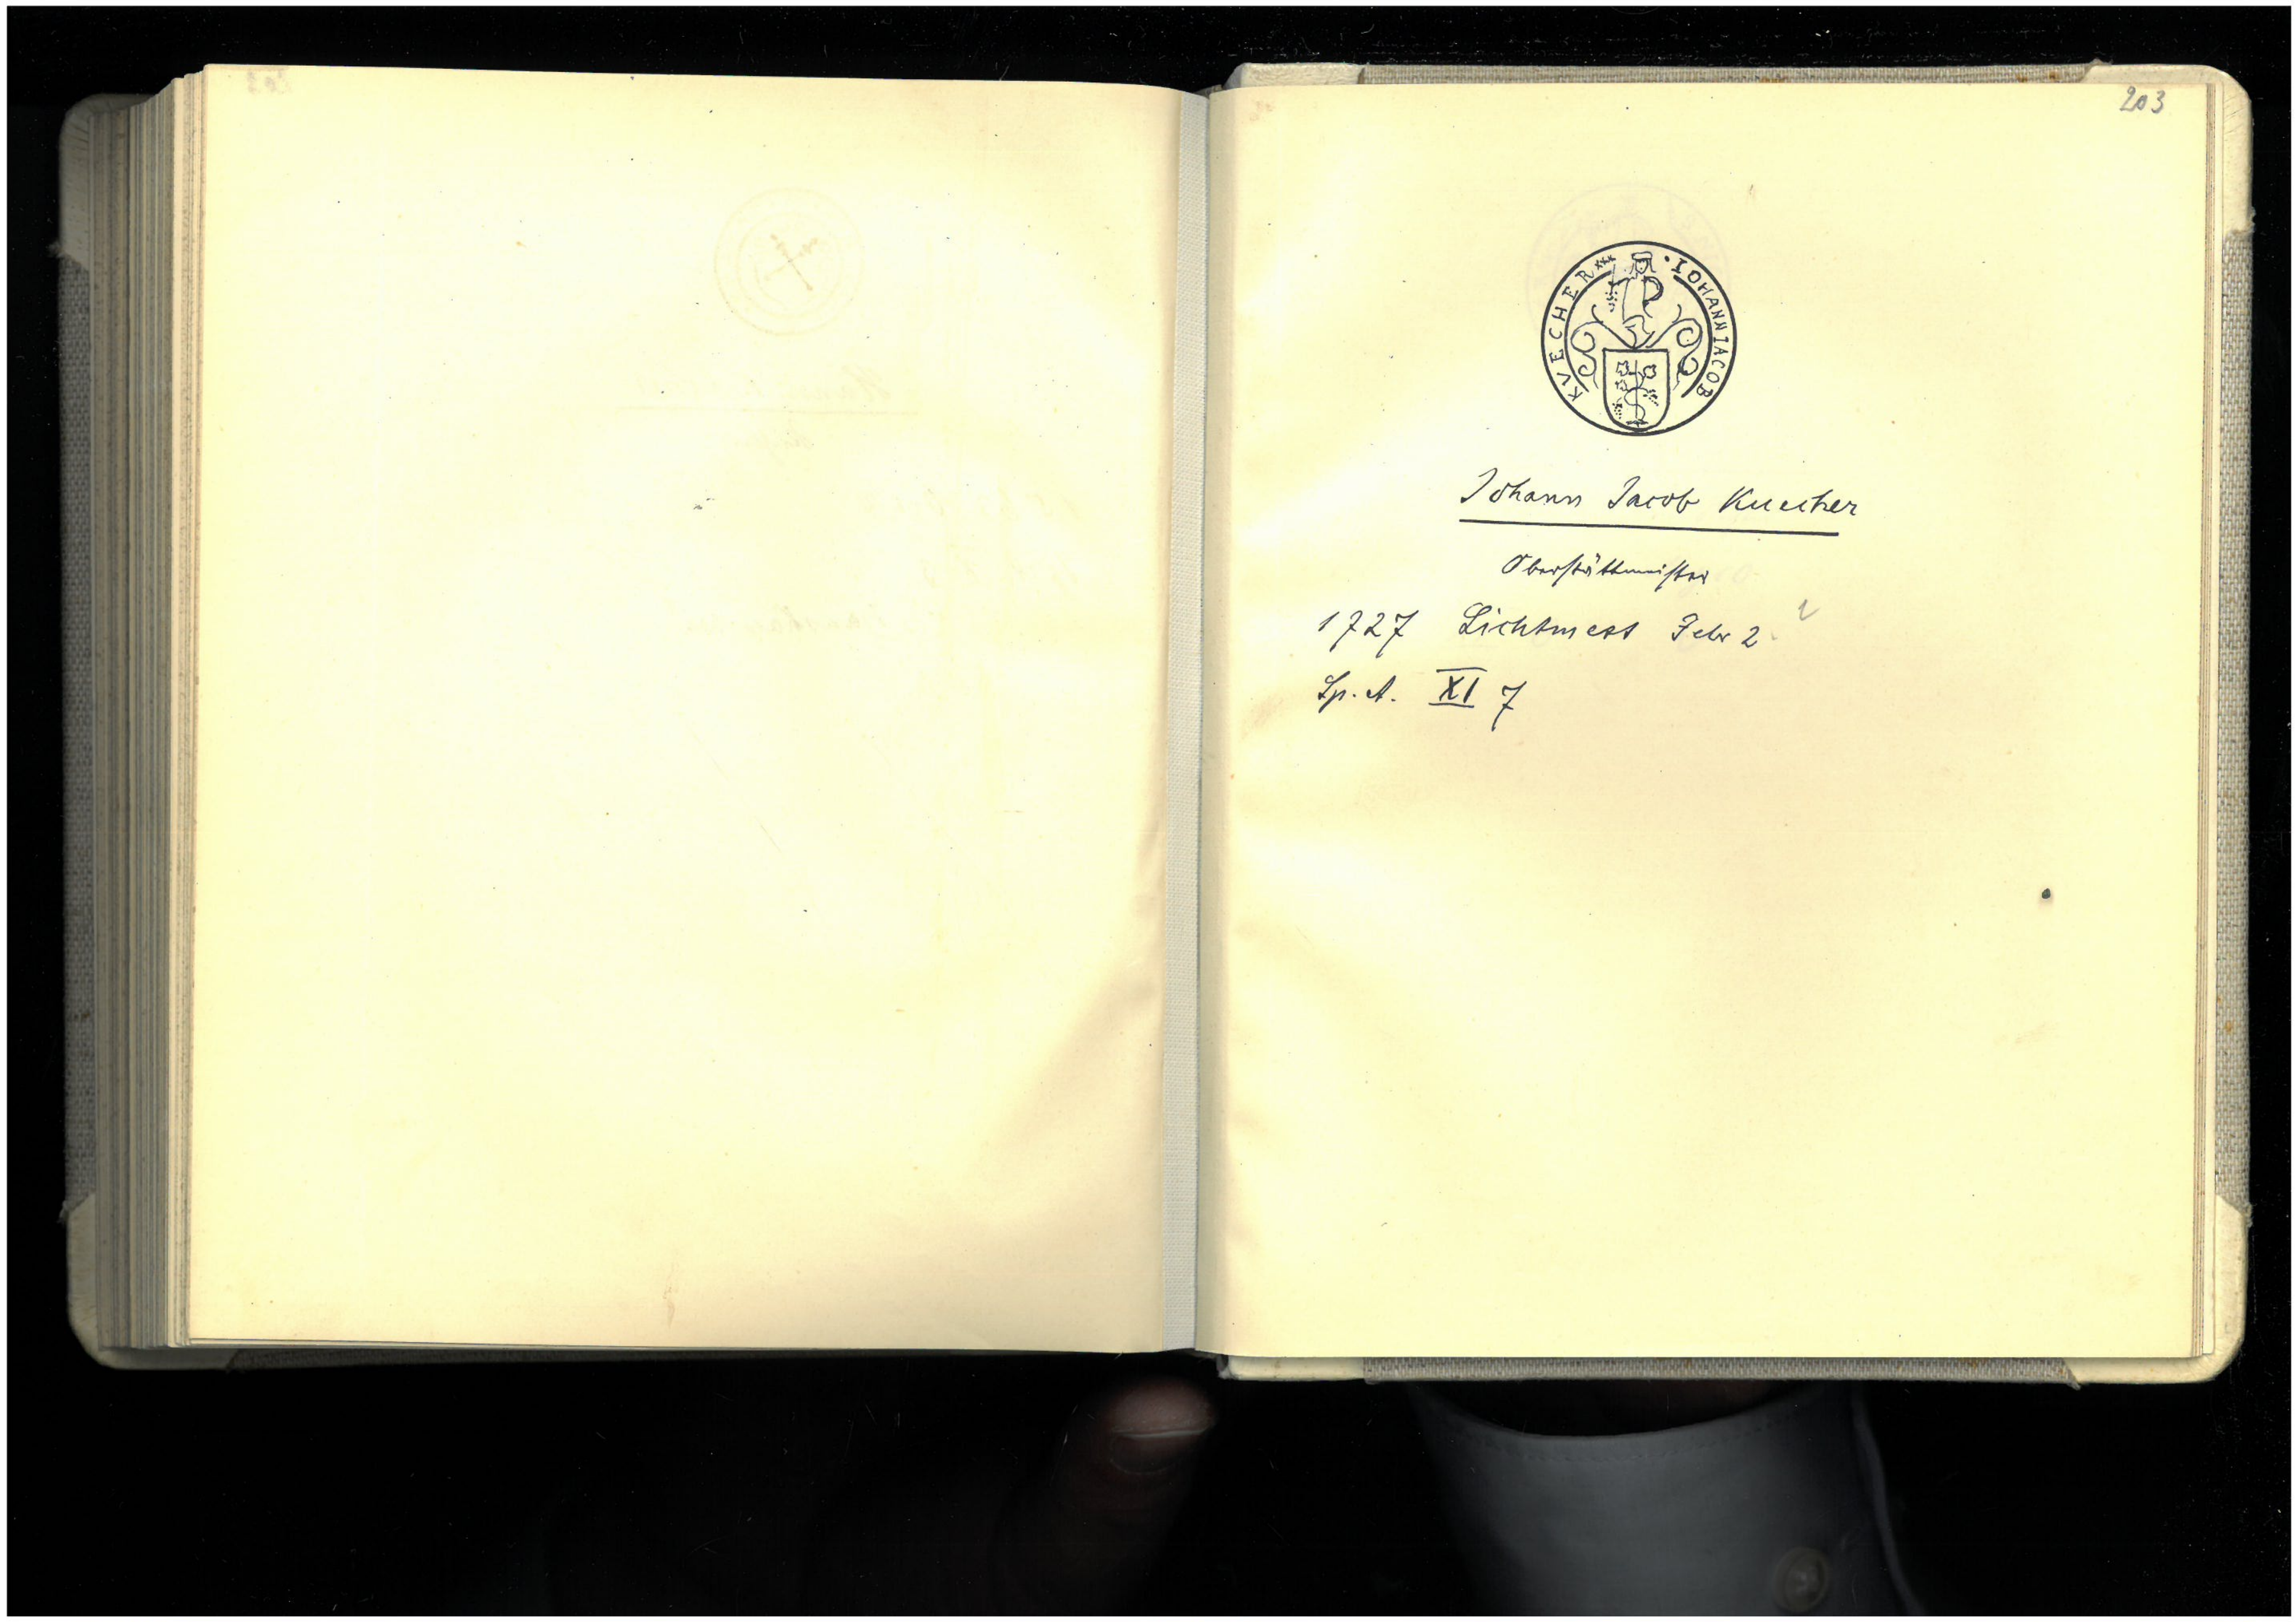 203
· IOHANN IACOB KVECHER xxx
Johann Jacob Kuecher
Oberstättmeister
1727 Lichtmess Febr 2.
Sp. A. XI 7